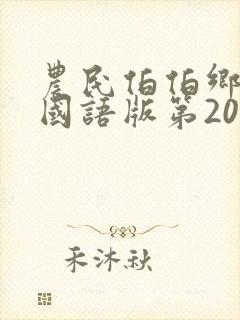 農民伯伯鄉
國語版第20
禾沐秋